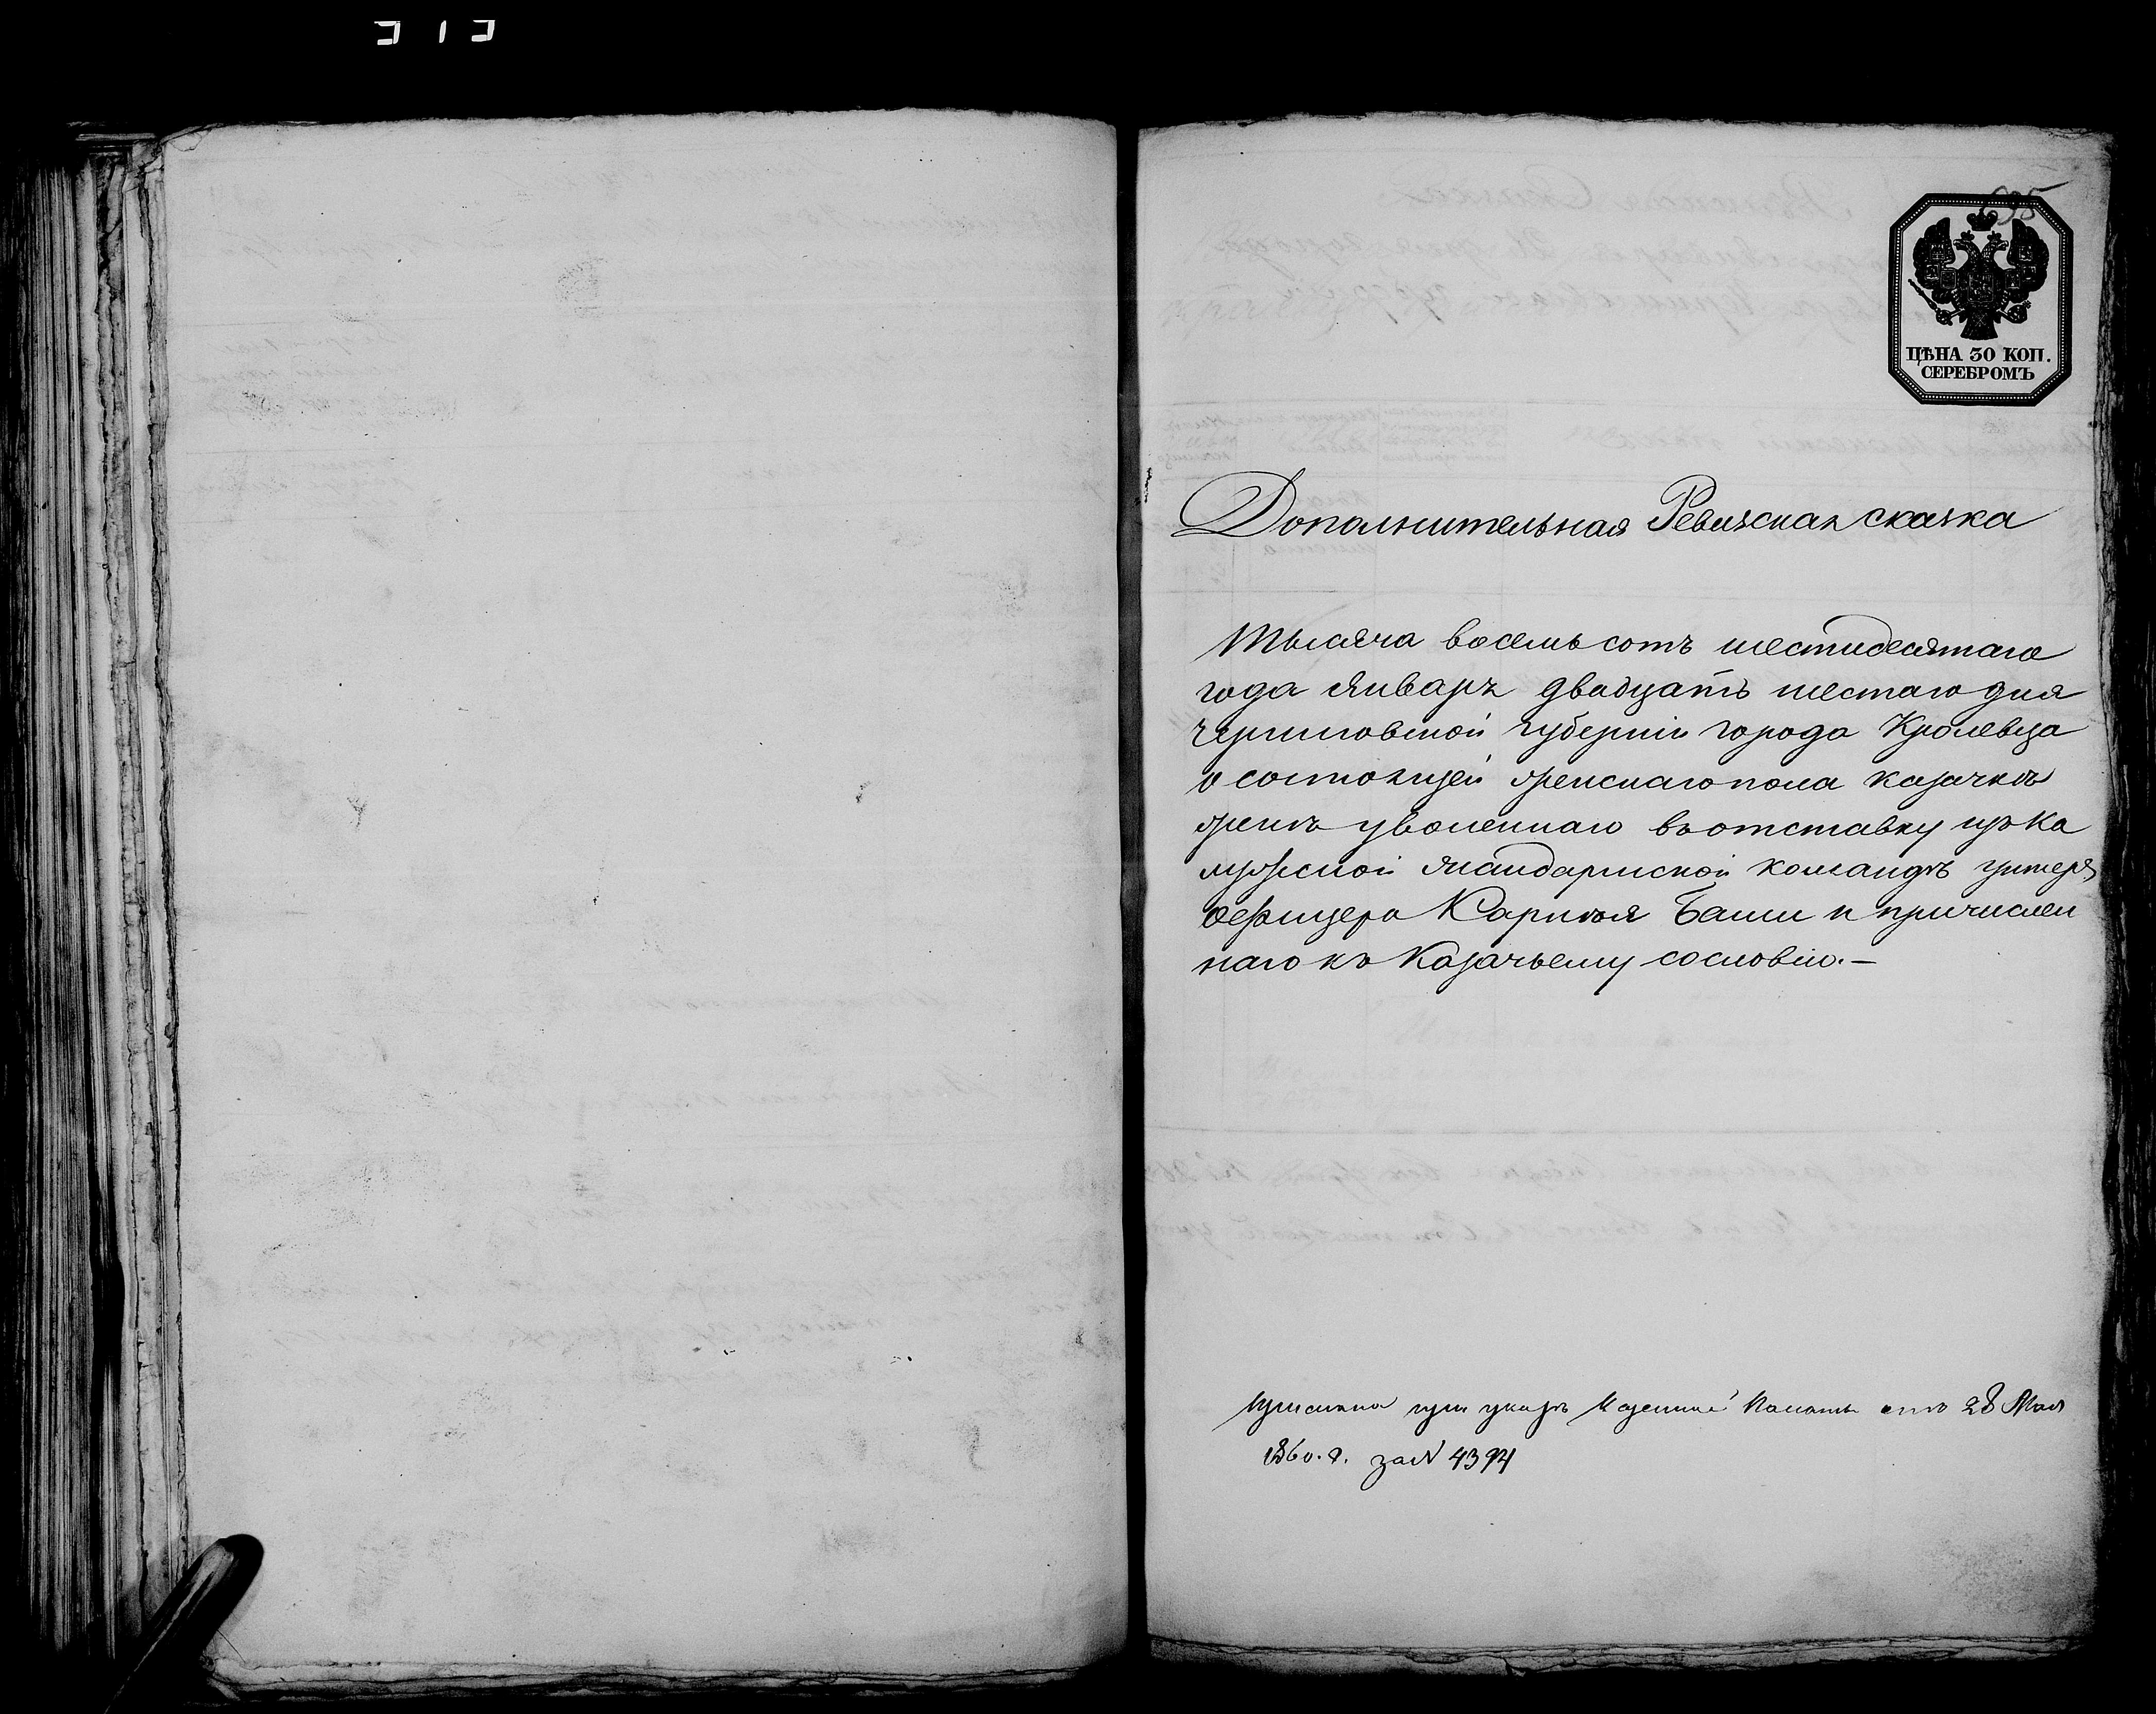 313
695
ЦѢНА 30 КОП.
СЕРЕБРОМЪ
Дополнительная Ревизская сказка
Тысяча восемь сотъ шестидесятаго
года Января двадцать шестаго дня
Черниговской губерніи города Кролевца
о состоящей женскаго пола казачкѣ
женѣ уволеннаго въ отставку изъ Ка
лужской жандармской команды унтеръ
офицера Карпа Баши и причислен
наго къ казачьему сословію.—
при указѣ Казенной Палаты отъ 28 Мая
1860. г. за № 4394